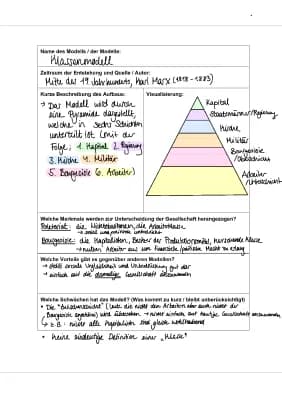 Name des Modells / der Modelle:
Klassenmodell
Zeitraum der Entstehung und Quelle / Autor:
Mitte des 19. Jahrhunderts, Karl Marx (1818 - 1883)
Kurze Beschreibung des Aufbaus:
→ Das Modell wird durch
eine Pyramide dargestellt,
welche in sechs Schichten
unterteilt ist (mit der
Folge: 1. Kapital 2. Regierung
3. Kirche 4. Militär
5. Bourgeoisie 6. Arbeiter)
Visualisierung:
Kapital
Staatsmänner/Regierung
Kirche
Militär
Bourgeoisie
/Oberschicht
Arbeiter
/Unterschicht
Welche Merkmale werden zur Unterscheidung der Gesellschaft herangezogen?
Proletariat: die Arbeiterklasse
Bourgeoisie: die Kapitalisten, Besitzer der Produktionsmittel, herrschende Klasse
→ nutzen Arbeiter aus um finanzielle/politische Macht zu
Welche Vorteile gibt es gegenüber anderen Modellen?
→ stellt soziale Ungleichheit und Unterdrückung gut dar
→ einfach auf die damalige Gesellschaft
Welche Schwächen hat das Modell? (Was kommt zu kurz / bleibt unberücksichtigt)
• Die (Leute die nicht den Arbeitern aber auch nicht der
Bourgeoisie angehören) wird übersehen → nicht einfach auf heutige Gesellschaft
→ z.B. nicht alle Kapitalisten sind gleich wohlhabend
• keine eindeutige Definition einer „Klasse"